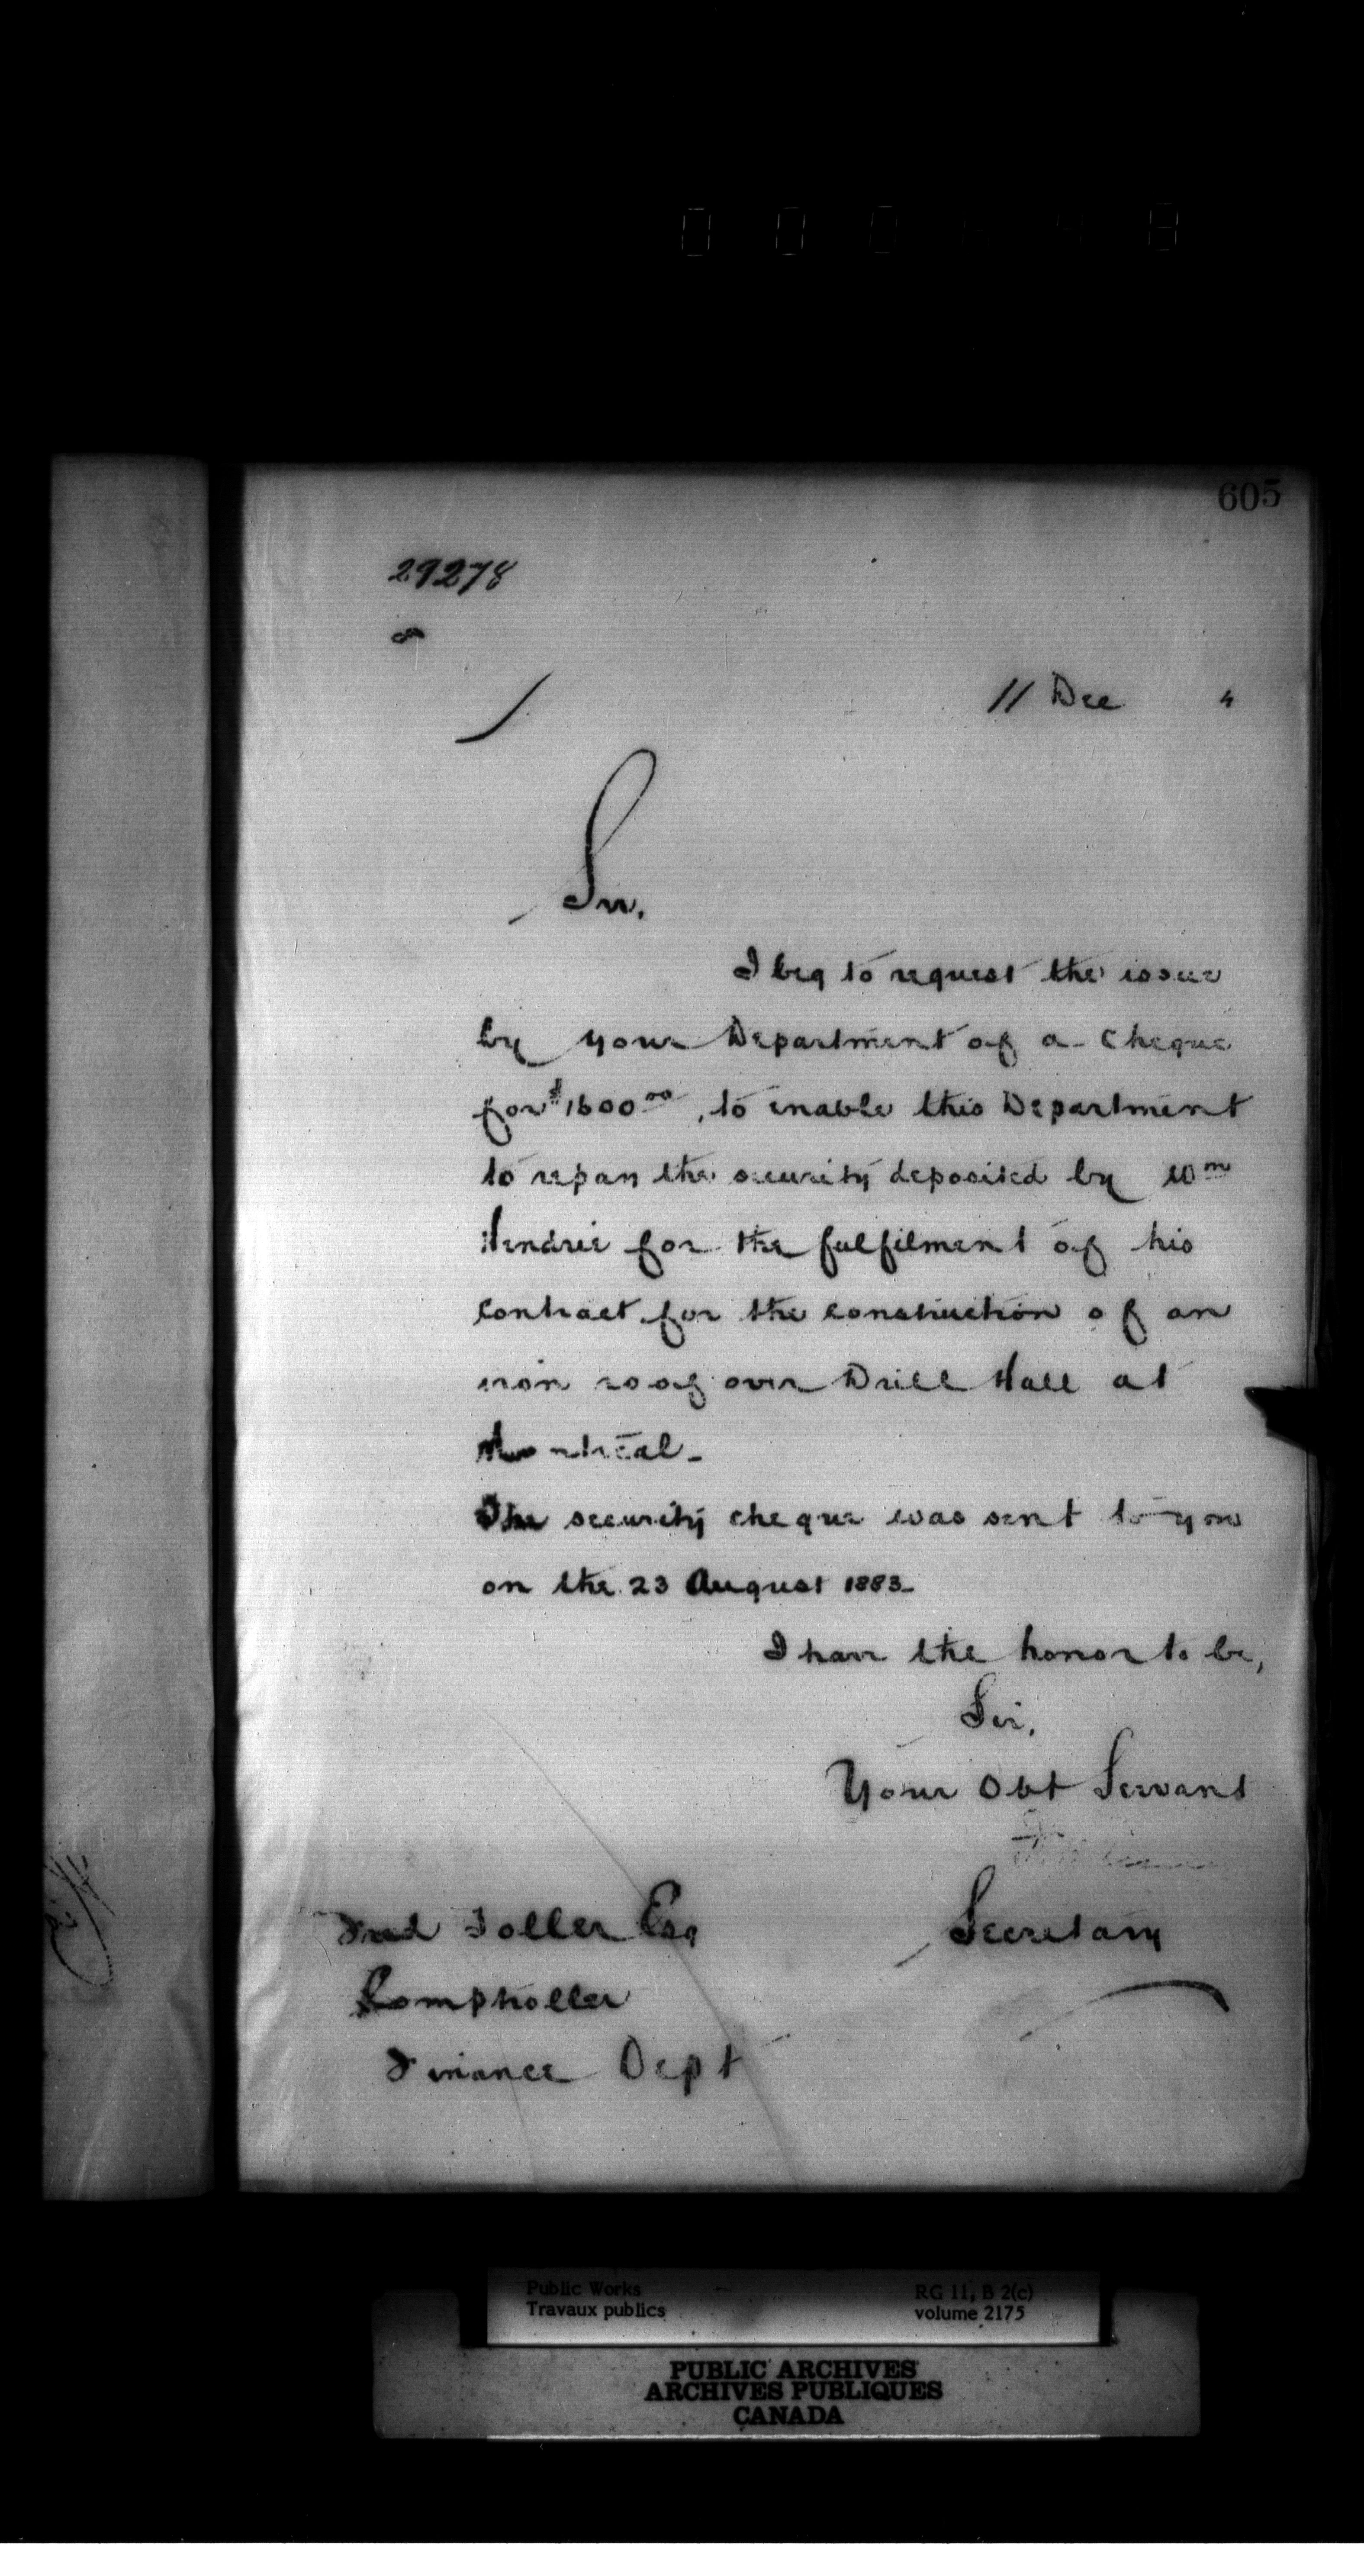 605
29278
11 Dec 4
Sir,
I beg to request the issue
by your Department of a Cheque
for $1600 00, to enable this Department
to repay the security deposited by Wm
Hendrie for the fulfilment of his
contract for the construction of an
iron roof over Drill Hall at
Montreal -
The security cheque was sent to you
on the 23 August 1883 -
I have the honor to be,
Sir,
Your Obt Servant
Secretary
Fred Toller Esq
Comptroller
Finance Dept
Public Works
Travaux publics
RG 11, B 2(c)
volume 2175
PUBLIC ARCHIVES
ARCHIVES PUBLIQUES
CANADA